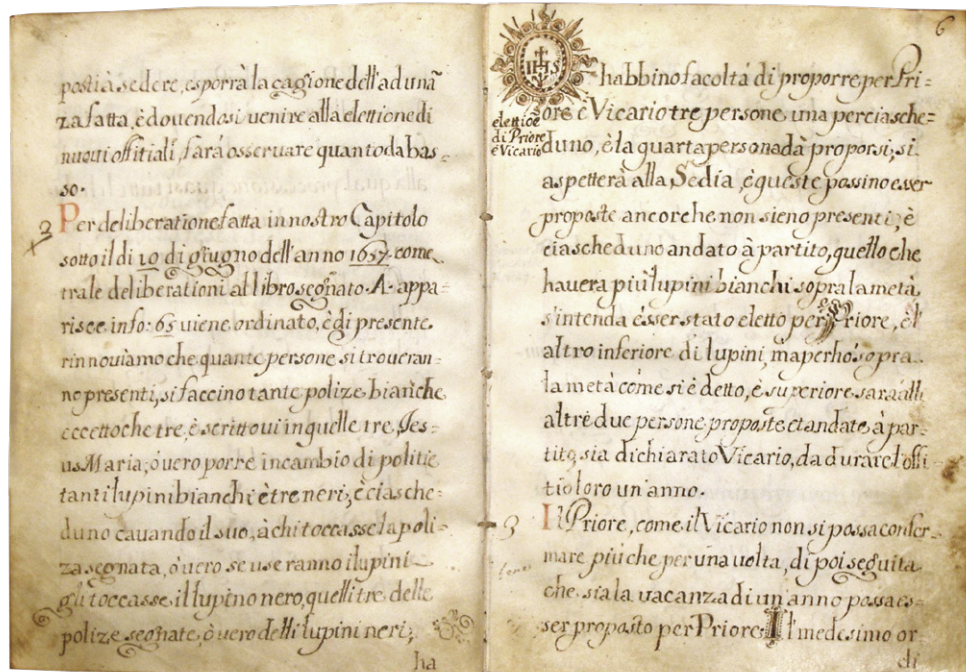 posti à sedere, esporrà la cagione dell'adunã
za fatta, è dovendosi venire alla elettione di
nuovi offitiali, farà osservare quanto da bas=
so.
2
Per deliberatione fatta in nostro Capitolo
sotto il di 10 di giugno dell'anno 1657. come
trale deliberationi al libro segnato .A. appa=
risce info: 65 viene ordinato, è di presente
rinnoviamo che quante persone si troveran=
no presenti, si faccino tante polize bianche
eccettoche tre, è scrittovi in quelle tre, Jes=
us Maria; òvero porre incambio di politie
tanti lupini bianchi è tre neri; è ciasche=
duno cavando il suo, à chi toccasse la poli=
za segnata, òvero se useranno i lupini
gli toccasse il lupino nero, quelli tre delle
polize segnate, òvero delli lupini neri;
ha
6
IHS
elettiõe
di Priore
è Vicario
habbino facoltà di proporre per Pri=
ore è Vicario tre persone una per ciasche=
duno, è la quarta persona dà proporsi, si
aspetterà alla Sedia, è queste possino esser
proposte ancorche non sieno presenti; è
ciascheduno andato à partito, quello che
havera più lupini bianchi sopra la metà,
s'intenda èsser stato eletto per Priore, è l'
altro inferiore di lupini, mà perhò sopra
la metà come si è detto, è superiore sarà alli
altre due persone proposte et andate à par=
tito, sia dichiarato Vicario, da durare l'offi
tio loro un'anno.
3
Il Priore, come il Vicario non si possa confer=
mare più che per una volta, di poi seguita
che sia la vacanza di un'anno possa es=
ser proposto per Priore. Il medesimo or
di